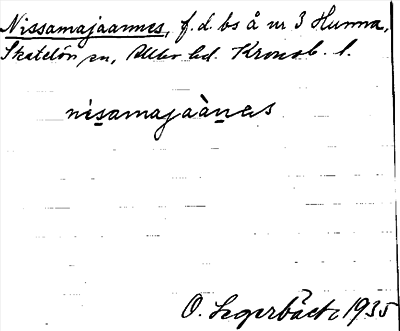 Nissamajaannes, f.d. bs å nr 3 Hunna,
Skatelöv sn, Allbo hd. Kronob. l.
nisamajaànes
O. Segerbäck, 1935